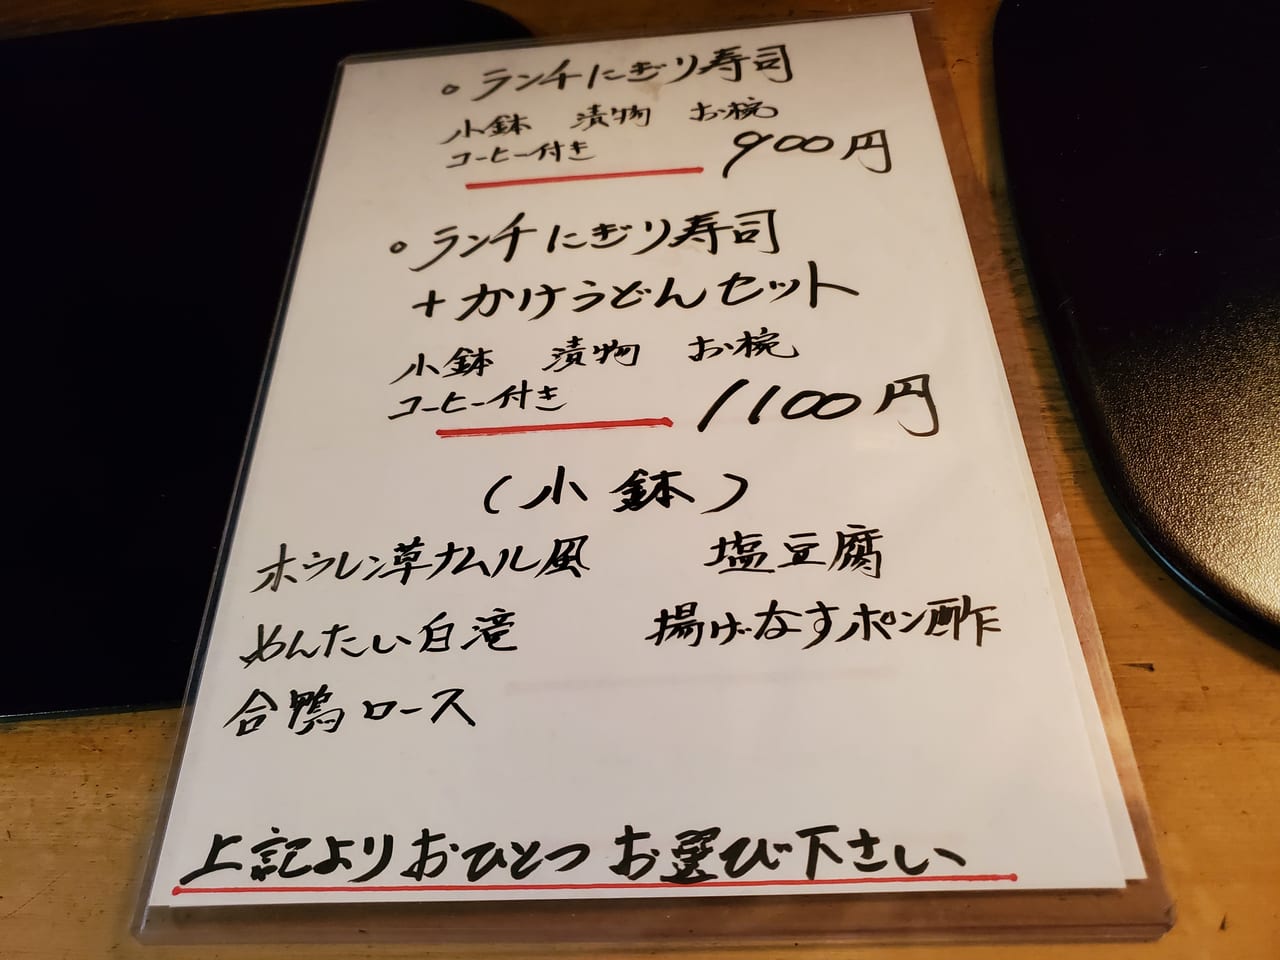 。ランチにぎり寿司
小鉢 漬物 お椀
コーヒー付き 900円
。ランチにぎり寿司
+かけうどんセット
小鉢 漬物 お椀
コーヒー付き 1100円
(小鉢)
ホウレン草ナムル風 塩豆腐
めんたい白滝 揚げなすポン酢
合鴨ロース
上記よりおひとつお選び下さい